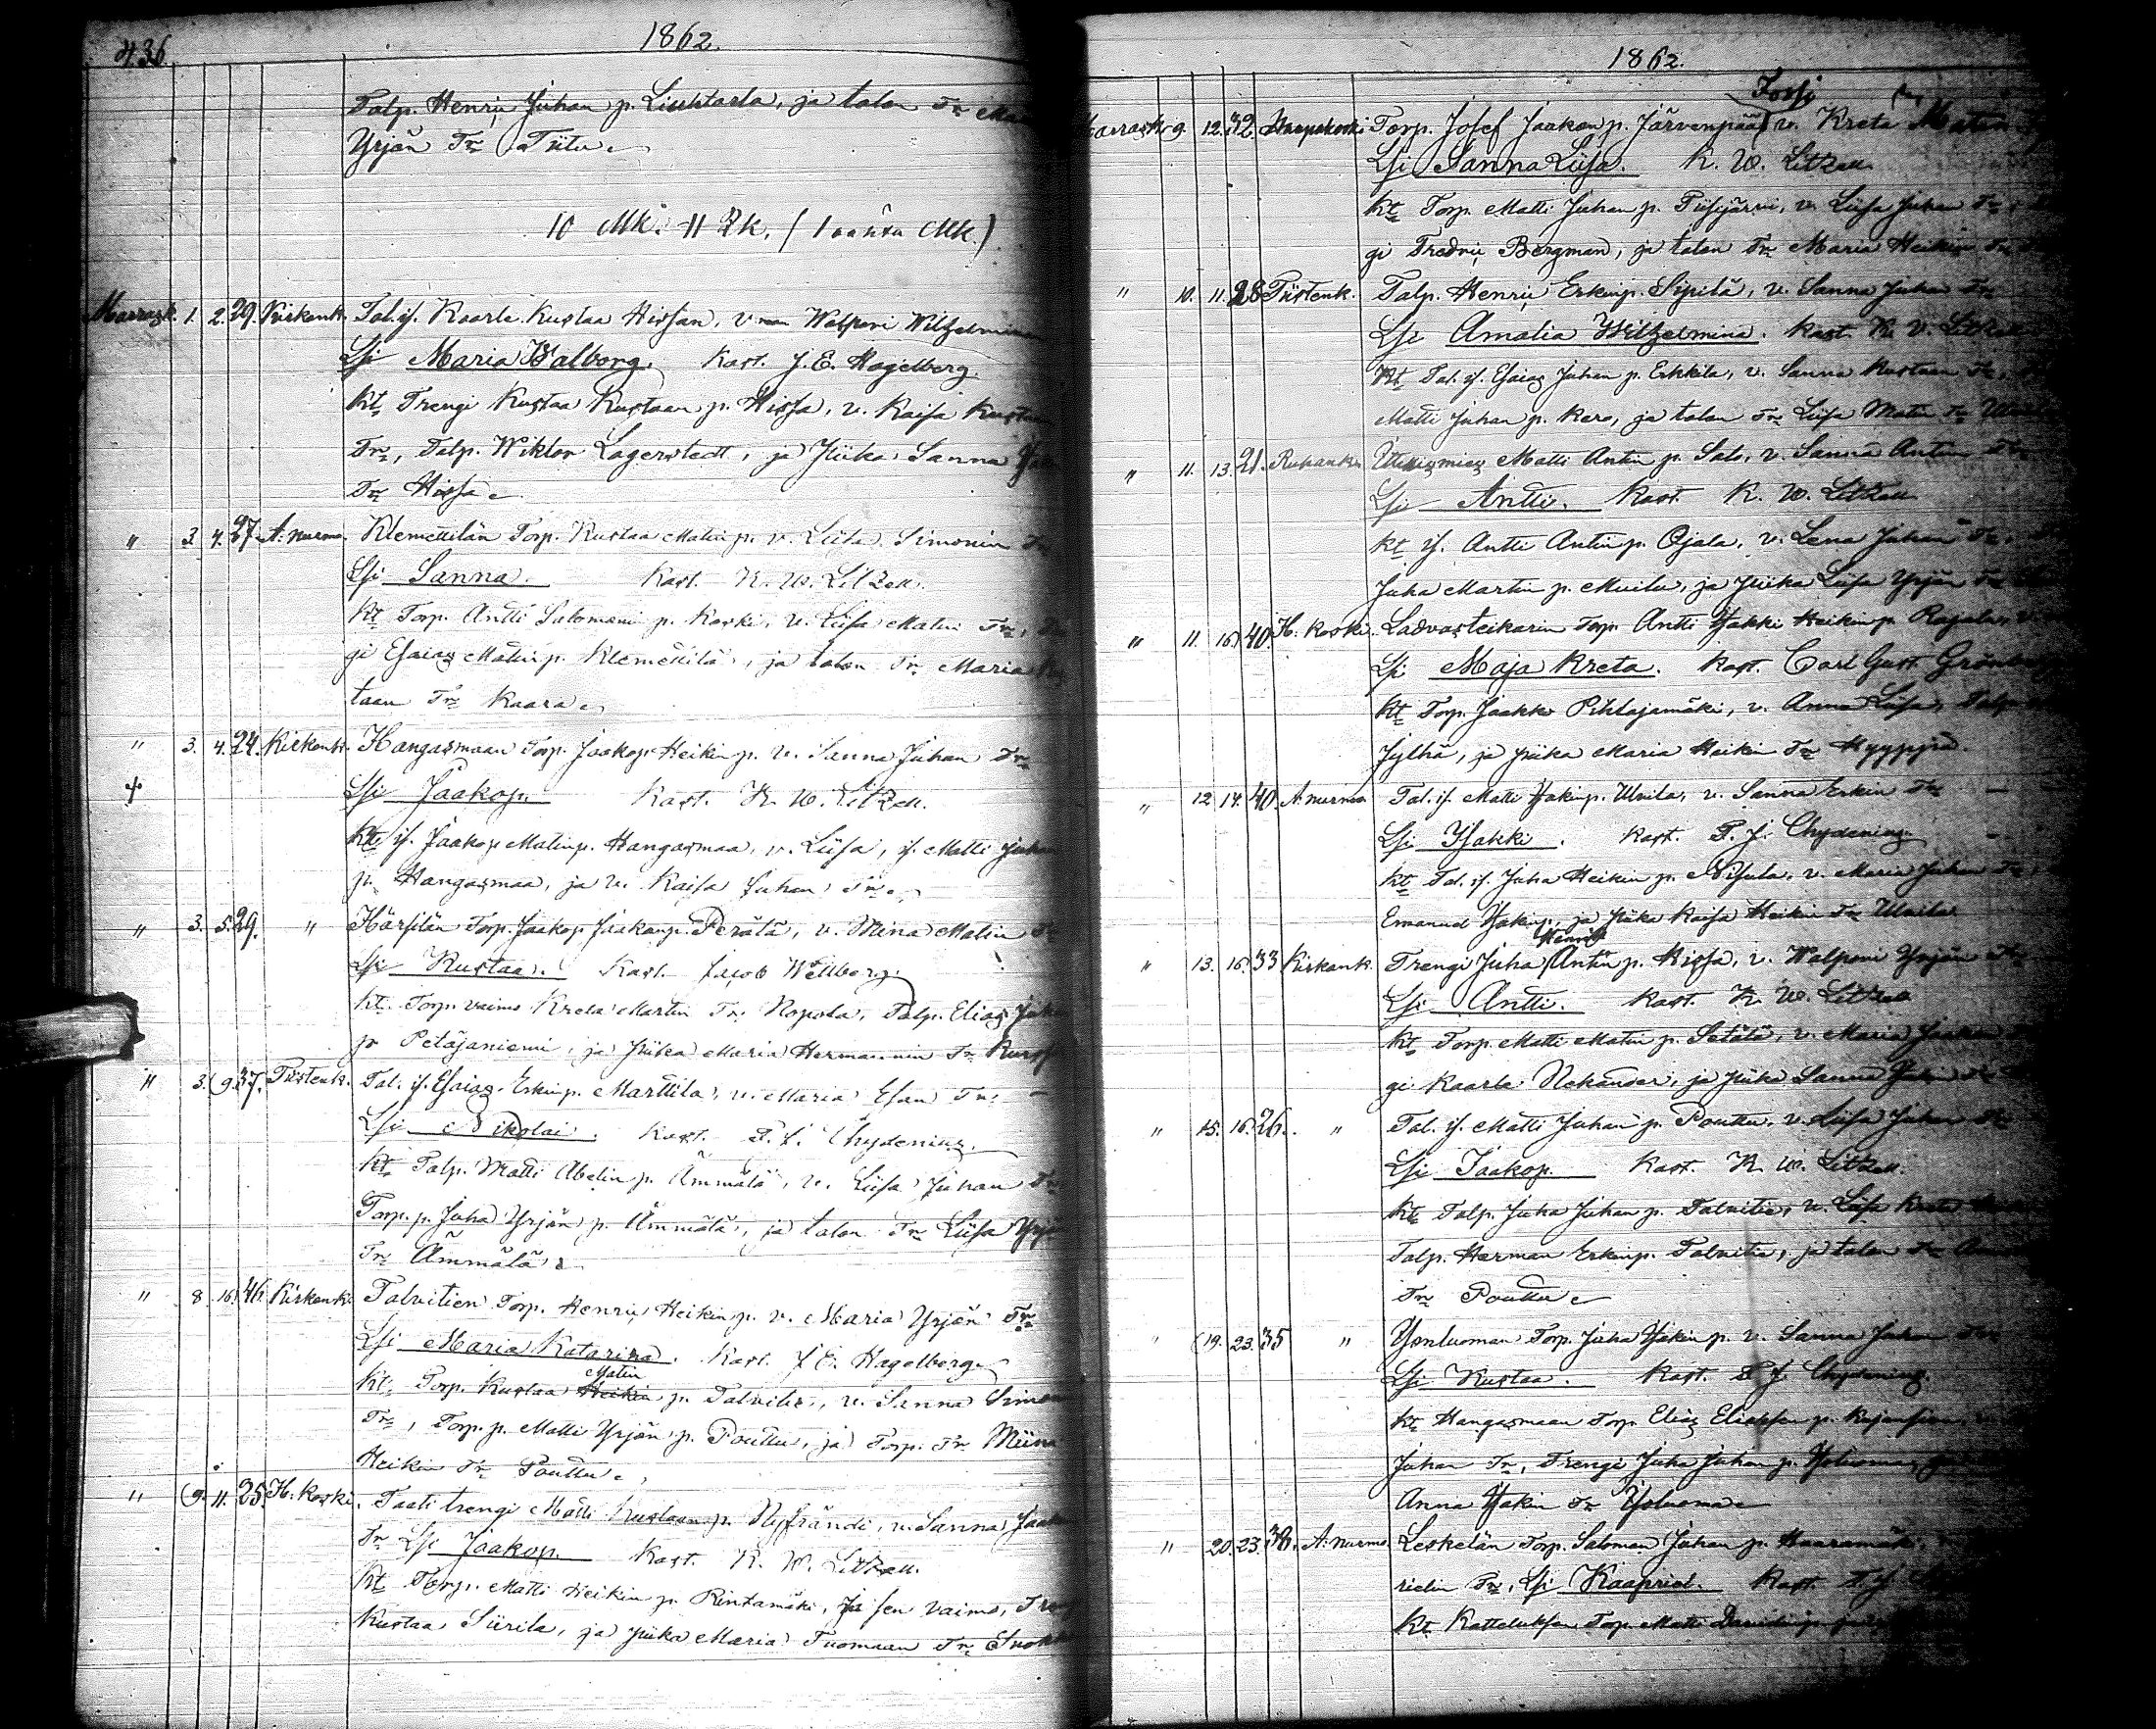 436.
1862.
Talp. Henriᶜ Juhan p. Liuhtarla, ja talon Tr
Yrjän Tr Titu.
10 Mk. 11 Vk. (1 Mk.)
Marrask. 1. 2. 29. Kirkonk. Tal. if. Kaarle Kustaa Hissan, v. Walpori Wilhelmina
Lsi Maria Walborg. Kast. J. E. Hagelberg.
Kt. Trengi Kustaa Kustaan p. Hissa, v. Kaisa Kustaan
Tr, Talp. Wiktor Lagerstedt, ja piika Sanna
Tr Hissa.
" 3. 4. 27. A. nurmo. Klemettilän Torp. Kustaa Matin p. v. Liisa Simonin Tr
Lsi Sanna. Kast. K. W. Litzell.
Kt Torp. Antti Salomoni p. Koski, v. Liisa Matin Tr,
gi Esaias Matin p. Klemettilä, ja talon Tr Maria
taan Tr Kaara.
" 3. 4. 24. Kirkonk. Hangasmaan Torp. Jaakop Heikin p. v. Sanna Juhan Tr
Lsi Jaakop. Kast. K. W. Litzell.
Kt if. Jaakop Matin p. Hangasmaa, v. Liisa, if. Matti Juhan
p. Hangasmaa, ja v. Kaisa Juhan Tr.
" 3. 5. 29. " Härsilän Torp. Jaakop Jaakon p. Perälä, v. Mina Matin Tr
Lsi Kustaa. Kast. Jacob Wellberg.
Kt. Torp. vaimo Kreta Martin Tr Nopola, Talp. Elias Juhan
p Petäjaniemi, ja piika Maria Hermannin Tr
" 3. (9. 37. Tiistenk. Tal. if. Esaias Erkin p. Marttila, v. Maria Esan Tr
Lsi Nikolai. Kast. T. J. Chydenius.
Kt. Talp. Matti Abelin p. Ämmälä, v. Liisa Juhan Tr
Torp. p. Juha Yrjän p. Ämmälä, ja talon Tr Liisa Yrjän
Tr Ämmälä.
" 8. 16. 46. Kirkonk. Talvitien Torp. Henriᶜ Heikin p. v. Maria Yrjän Tr
Lsi Maria Katarina. Kast. J. E. Hagelberg.
Matin
Kt. Torp. Kustaa Heikin p. Talvitie, v. Sanna Simon
Tr, Torp. p. Matti Yrjän p. Pouttu, ja Torp. Tr Miina
Heikin Tr Pouttu.
" (9. 11. 25. H. koski. Taati trengi Matti Kustaan p. Nyfrändi, v. Sanna Jaakon
Tr Lsi Jaakop. Kast. K. W. Litzell.
Kt Torp. Matti Heikin p. Rintamäki, ja sen vaimo,
Kustaa Siirilä, ja piika Maria Tuomaan Tr
1862.
Fossi
Marrask. 9. 12. 32. Haapakoski Torp. Josef Jaakon p. Järvenpää v. Kreta Matin
Lsi Sanna Liisa. K. W. Litzell
Kt Torp. Matti Juhan p. Piisijärvi, v. Liisa Juhan Tr
gi Fredriᶜ Bergman, ja talon Tr Maria Heikin Tr
" 10. 11. 28. Tiistenk. Talp. Henriᶜ Erkin p. Sipilä, v. Sanna Juhan Tr
Lsi Amalia Wilhelmina. Kast. K. V. Litzell
Kt Tal. if. Esaias Juhan p. Erkkilä, v. Sanna Kustaan Tr,
Matti Juhan p. Kero, ja talon Tr Liisa Matin Tr
" 11. 13. 21. Ruhank. Itellismies Matti Antin p. Salo, v. Sanna Antin Tr
Lsi Antti. Kast. K. W. Litzell
Kt if. Antti Antin p. Ojala, v. Lena Juhan Tr,
Juha Martin p. Muilu, ja piika Liisa Yrjän Tr
" 11. 16. 40. H. koski. Ladvasteikarin Torp. Antti Isakki Heikin p. Rajala, v.
Lsi Maja Kreta. Kast. Carl Gust. Grön
Kt Torp. Jaakko Pihlajamäki, v. Anna Liisa, Talp.
Jylhä, ja piika Maria Heikin Tr Hyyppä.
" 12. 14. 40. A. nurmo Tal. if. Matti Isakin p. Unila, v. Sanna Erkin Tr
Lsi Isakki. Kast. T. J. Chydenius
Kt Tal. if. Juha Heikin p. Nisula, v. Maria Juhan Tr,
Emanuel Isakin p., ja piika Kaisa Heikin Tr Unila.
Henrik
" 13. 16. 33 Kirkonk. Trengi Juha Antin p. Hissa, v. Walpori Yrjän Tr
Lsi Antti. Kast. K. W. Litzell
Kt Torp. Matti Matin p. Setälä, v. Maria Jaakon
gi Kaarle Nekander, ja piika Sanna
" 15. 16. 26. " Tal. if. Matti Juhan p. Pouttu, v. Liisa Juhan Tr
Lsi Jaakop. Kast. K. W. Litzell.
Kt Talp. Juha Juhan p. Talvitie, v. Liisa Kreta
Talp. Herman Erkin p. Talvitie, ja talon Tr
Tr Pouttu.
" (19. 23. 35 " Ysoluoman Torp. Juha Isakin p. v. Sanna Juhan Tr
Lsi Kustaa. Kast. T. J. Chydenius.
Kt Hangasmaan Torp. Elias Eliaksen p.
Juhan Tr, Trengi Juha Juhan p. Ysoluoma,
Anna Isakin Tr Ysoluoma.
" 20. 23. 38. A. nurmo. Leskelän Torp. Salomon Juhan p. Haaramäki,
rielin Tr, Lsi Kaapriel. Kast. T. J.
Kt Katteluksen Torp. Matti Davidin p.